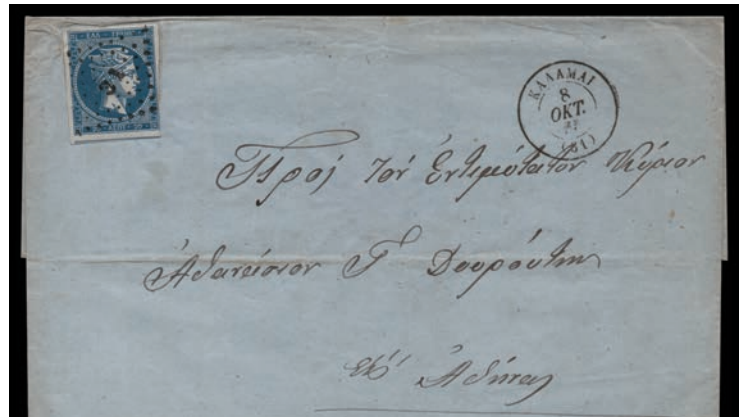 31
ΚΑΛΑΜΑΙ
8
ΟΚΤ.
(31)
Πρὸς τὸν Ἐντιμότατον Κύριον
Ἀθανάσιον Γ Δουρούτην
εἰς Ἀθήνας